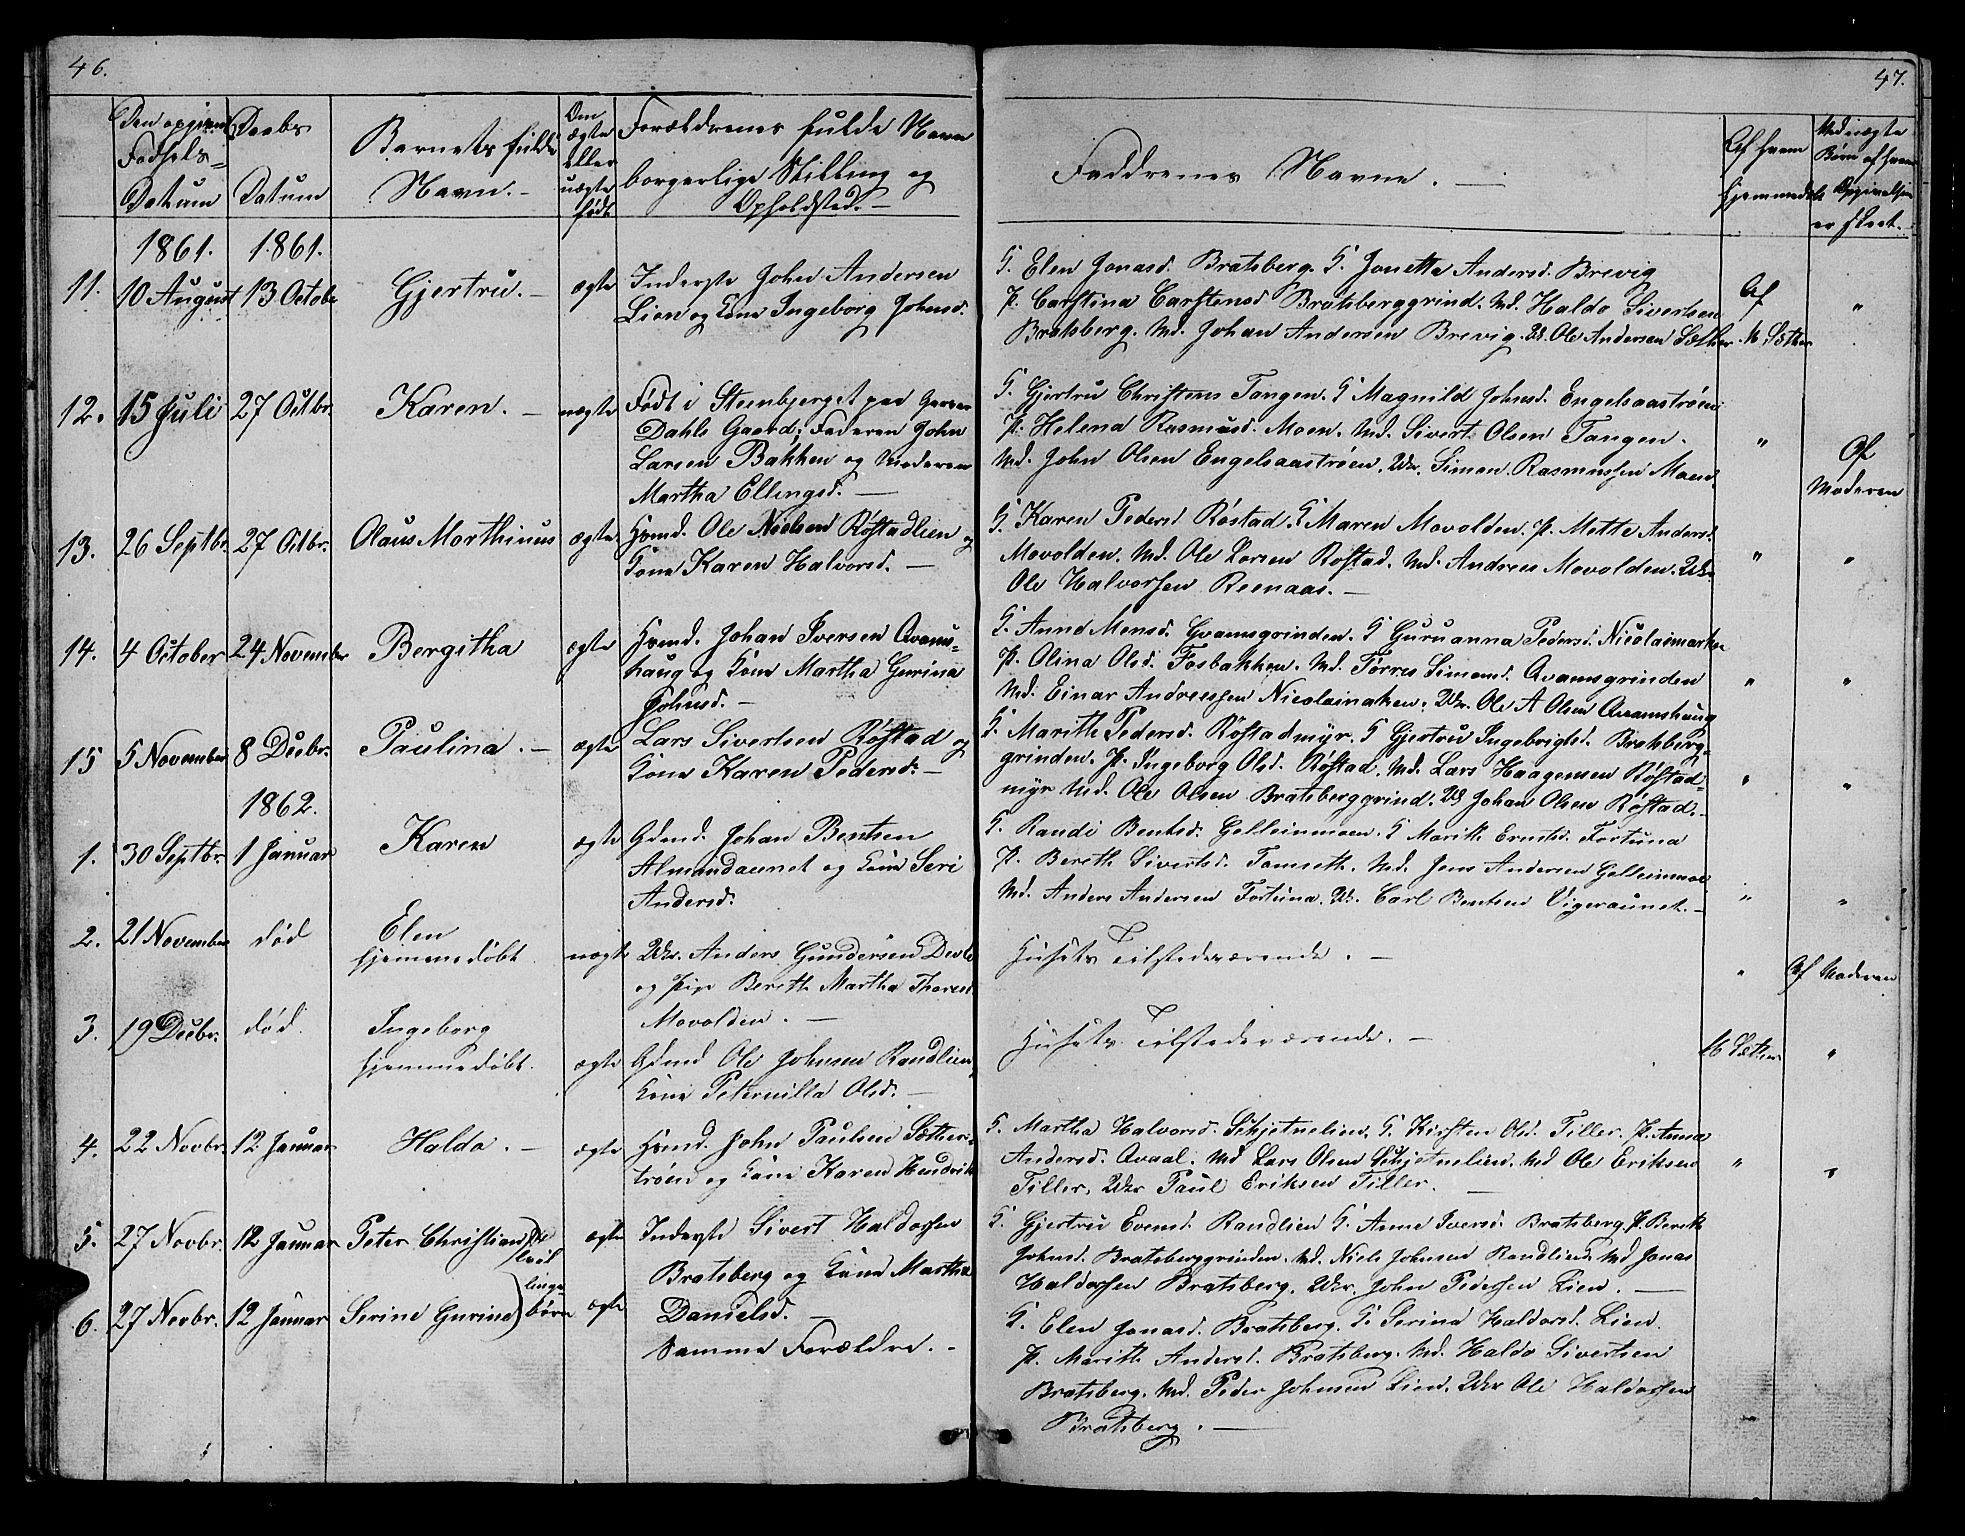 46.
47.
Den opgivne Fødsels-Datum
Daabs Datum
Barnets fulde Navn. -
Om ægte eller uægte født
Forældrenes fulde Navn
borgerlige Stilling og
Opholdsted. -
Faddrenes Navne. -
Af hvem hjemmedøbt
Ved uægte Børn af hvem Opgivelsen er skeet.
1861. 1861.
11. 10 August 13 Octobr Gjertru. - ægte
Inderste John Andersen
Lien og Kone Ingeborg Johnsd.
G. Elen Jonasd. Bratsberg. G. Jonetta Andersd. Brevig
P. Carstina Carstensd Bratsberggrind. Md. Haldo Sivertsen
Bratsberg. Md. Johan Andersen Brevig. Uk. Ole Andersen Sæther.
Af
M. Sæther
"
12. 15 Juli 27 Octbr. Karen. - uægte
Født i Steenbjerget paa
Dahls Gaard; Faderen John
Larsen Bakken og Moderen
Martha Ellingsd. -
G. Gjertru Christens Tangen. G Magnild Johnsd. Engelsaastrøen
P. Helena Rasmusd. Moen. Md. Sivert Olsen Tangen.
Md. John Olsen Engelsaastrøen. Ukr. Simon Rasmussen Moen.
"
Af
Moderen
13. 26 Septbr. 27 Octbr. Olaus Morthinus ægte
Hsmd. Ole Nielsen Røstadlien og
Kone Karen Halvorsd. -
G. Karen Pedersd Røstad. G Maren Movolden. P. Mette Andersd.
Movolden. Md. Ole Larsen Røstad. Md. Andreas Movolden. Ukr
Ole Halvorsen Reenaas. -
" "
14. 4 October 24 November Bergitha ægte
Hsmd. Johan Iversen Qvams-
haug og Kone Martha Gurina
Johnsd. -
G. Anne Monsd. Qvamsgrinden. G Guruanna Pedersd. Nicolaimarken
P. Olina Olsd. Fosbakken. Md. Torres Simonsd. Qvamsgrinden
Md. Einar Andreassen Nicolainaken. Ukr. Ole A Olsen Qvamshaug
" "
15 5 November 8 Decbr. Paulina. - ægte
Lars Sivertsen Røstad og
Kone Karen Pedersd. -
G. Marith Pedersd. Røstadmyr. G Gjertru Ingebrigtsd. Bratsberg-
grinden. P. Ingeborg Olsd. Røstad. Md. Lars Haagensen Røstad-
myr Md. Ole Olsen Bratsberggrind. Uk Johan Olsen Røstad. -
" "
1862.
1. 30 Septbr. 1 Januar Karen ægte
Gdmd. Johan Bentsen
Almindaunet og Kone Seri
Andersd.
G. Randi Bentsd. Gelleinmoen. G Marith Ernstsd. Fortuna
P. Bereth Sivertsd. Tomseth. Md. Jens Andersen Gelleinmoe
Md. Anders Andersen Fortuna. Uk. Carl Bentsen Vigeraunet. -
" "
2. 21 November død Elen
hjemmedøbt. uægte
Ukr. Anders Gundersen Devle
og Pige Bereth Martha Thoresd.
Movolden. -
Husets Tilstedeværende. -
" Af Moderen
3. 19 Decbr. død. Ingeborg
hjemmedøbt. ægte
Gdmd Ole Johnsen Randlien,
Kone Peternilla Olsd. -
Husets Tilstedeværende. -
M Sæther "
4. 22 Novbr. 12 Januar Haldo. - ægte
Hsmd. John Paulsen Sæthers-
trøen og Kone Karen Hendriks
G. Martha Halvorsd. Schjetnelien. G. Kirsten Olsd. Tiller. P. Anna
Andersd. Qvaal. Md Lars Olsen Schjetnelien. Md Ole Eriksen
Tiller. Ukr Paul Eriksen Tiller. -
" "
5. 27 Novbr. 12 Januar Peter Christian ægte
Inderste Sivert Haldorsen
Bratsberg og Kone Martha
Danielsd. -
G. Gjertru Evensd. Randlien G. Anne Iversd. Bratsberg. P. Bereth
Johnsd. Bratsberggrinden. Md. Niels Johnsen Randlien. Md Jonas
Haldorsen Bratsberg. Ukr. John Pedersen Lien. -
6. 27 Novbr. 12 Januar Serine Gurine ægte
Samme Forældre. -
G. Elen Jonasd. Bratsberg. G. Serina Haldorsd. Lien.
P. Marith Andersd. Bratsberg. Md. Haldo Sivertsen
Bratsberg. Md. Peder Johnsen Lien. Ukr Ole Haldorsen
Bratsberg. -